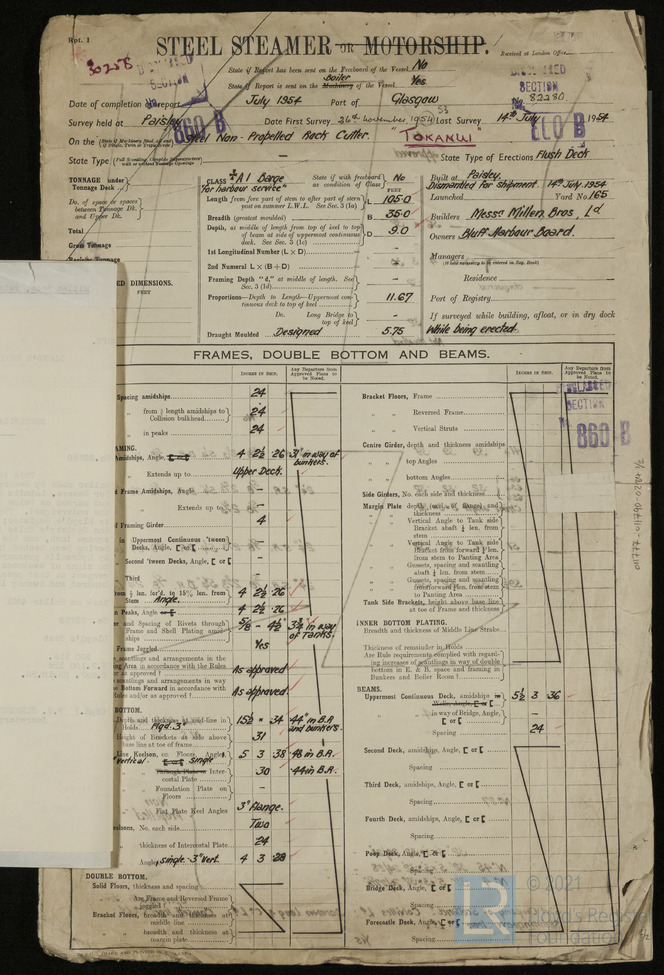 Rpt. 1
30258
STEEL STEAMER OR MOTORSHIP.
Received at London Office
State if Report has been sent on the Freeboard of the Vessel No
State if Report is sent on the Boiler Machinery of the Vessel Yes
SECTION
No. 82280
Date of completion of report July 1954 Port of Glasgow
Survey held at Paisley Date First Survey 26th November 1953 Last Survey 14th July 1954
860 B
On the Steel Non-Propelled Rock Cutter. "TOKANUI"
State Type — State Type of Erections Flush Deck
TONNAGE under Tonnage Deck
Do. of space or spaces between Tonnage Dk. and Upper Dk.
Total
Gross Tonnage
Register Tonnage
CLASS A1 Barge
"for harbour service"
State if with freeboard as condition of Class No
FEET
Length from fore part of stem to after part of stern post on summer L.W.L. See Sec. 3 (1a) L 105.0
Breadth (greatest moulded) B 35.0
Depth, at middle of length from top of keel to top of beam at side of uppermost continuous deck. See Sec. 3 (1c) D 9.0
1st Longitudinal Number (L × D) –
2nd Numeral L × (B + D) –
Framing Depth "d," at middle of length. See Sec. 3 (1d) –
Proportions—Depth to Length—Uppermost continuous deck to top of keel 11.67
Do. Long Bridge to top of keel –
Draught Moulded Designed 5.75
Built at Paisley.
Dismantled for shipment. 14th July. 1954
Launched Yard No. 165
Builders Messrs Millen, Bros., Ld
Owners Bluff Harbour Board.
Managers
Residence
Port of Registry
If surveyed while building, afloat, or in dry dock
While being erected.
ED DIMENSIONS.
FEET
FRAMES, DOUBLE BOTTOM AND BEAMS.
INCHES IN SHIP.
Any Departure from Approved Plans to be Noted.
Spacing amidships 24
from ⅕ length amidships to Collision bulkhead 24
in peaks 24
AMING.
Amidships, Angle, 4 2½ .26 .31" in way of bunkers.
Extends up to Upper Deck.
d Frame Amidships, Angle –
Extends up to –
d Framing Girder 4
n Uppermost Continuous 'tween Decks, Angle, –
Second 'tween Decks, Angle, –
Third –
from ⅕ len. for'd. to 15% len. from Stem Angle. 4 2½ .26
n Peaks, Angle 4 2½ .26
er and Spacing of Rivets through Frame and Shell Plating amidships 5/8 – 4½ 3¾ in way of Tanks.
Frame Joggled Yes
scantlings and arrangements in the ing Area in accordance with the Rules or as approved? As approved
scantlings and arrangements in way Bottom Forward in accordance with Rules and/or as approved? As approved
BOTTOM.
Depth and thickness at mid-line in Holds Flgd. 3" 15½ × .34 .44" in B.R. and bunkers.
Height of Brackets at side above base line at toe of frame 31
Line Keelson, on Floors, Angles, Vertical Single 5 3 .38 .48 in B.R.
Through Plate or Intercostal Plate .30 .44 in B.R.
Foundation Plate on Floors –
Flat Plate Keel Angles 3" Flange.
elsons, No. each side Two
thickness of Intercostal Plate .24
Angles, single. 3" Vert. 4 3 .28
DOUBLE BOTTOM.
Solid Floors, thickness and spacing
Are Frame and Reversed Frame joggled?
Bracket Floors, breadth and thickness at middle line
breadth and thickness at margin plate
Bracket Floors, Frame
Reversed Frame
Vertical Struts
Centre Girder, depth and thickness amidships
top Angles
bottom Angles
Side Girders, No. each side and thickness
Margin Plate depth (excl. of flange) and thickness
Vertical Angle to Tank side Bracket abaft ¼ len. from stem
Vertical Angle to Tank side Bracket from forward ¼ len. from stem to Panting Area
Gussets, spacing and scantling abaft ¼ len. from stem
Gussets, spacing and scantling from forward ¼ len. from stem to Panting Area
Tank Side Brackets, height above base line at toe of Frame and thickness
INNER BOTTOM PLATING.
Breadth and thickness of Middle Line Strake
Thickness of remainder in Holds
Are Rule requirements complied with regarding increases of scantlings in way of double bottom in E. & B. space and framing in Bunkers and Boiler Room?
BEAMS.
Uppermost Continuous Deck, amidships 5½ 3 .36
in way of Bridge, Angle, –
Spacing 24
Second Deck, amidships, Angle,
Spacing
Third Deck, amidships, Angle,
Spacing
Fourth Deck, amidships, Angle,
Spacing
Poop Deck, Angle,
Spacing
Bridge Deck, Angle,
Spacing
Forecastle Deck, Angle,
Spacing
SECTION
860 B
© 2021
Lloyd's Register
Foundation
LR